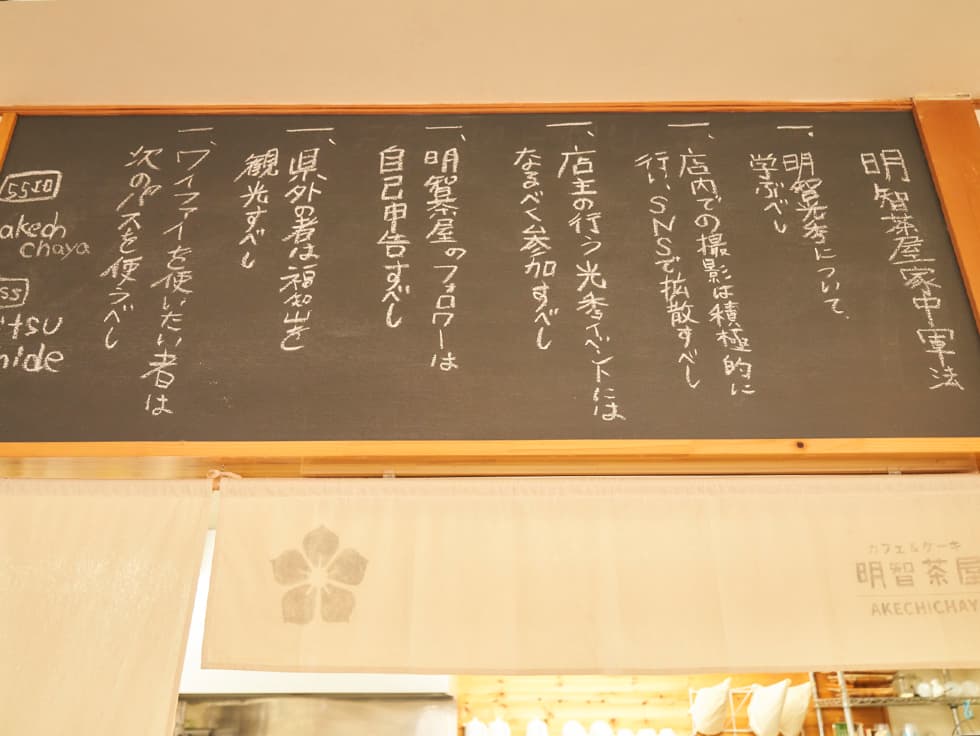 明智茶屋家中軍法
一、明智光秀について、
学ぶべし
一、店内での撮影は積極的に
行い、SNSで拡散すべし
一、店主の行う光秀イベントには
なるべく参加すべし
一、明智茶屋のフォロワーは
自己申告すべし
一、県外の者は福知山を
観光すべし
一、ワイファイを使いたい者は
次のパスを使うべし
SSID
akech
chaya
SS
itsu
hide
カフェ&ケーキ
明智茶屋
AKECHICHAY